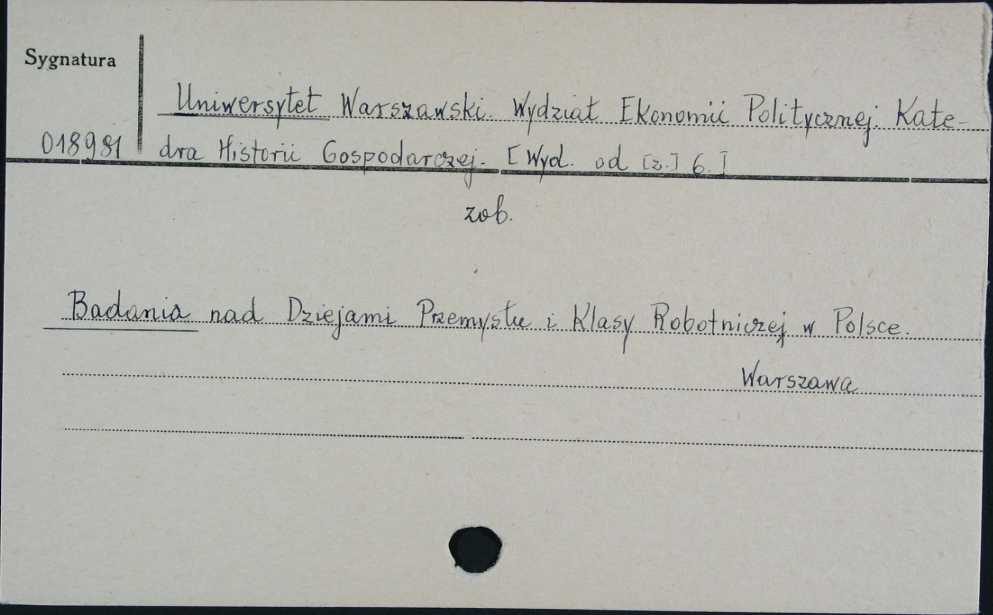 Sygnatura
Uniwersytet Warszawski. Wydział Ekonomii Politycznej. Kate-
018981 dra Historii Gospodarczej. [Wyd. od [z.] 6.]
zob.
Badania nad Dziejami Przemysłu i Klasy Robotniczej w Polsce.
Warszawa